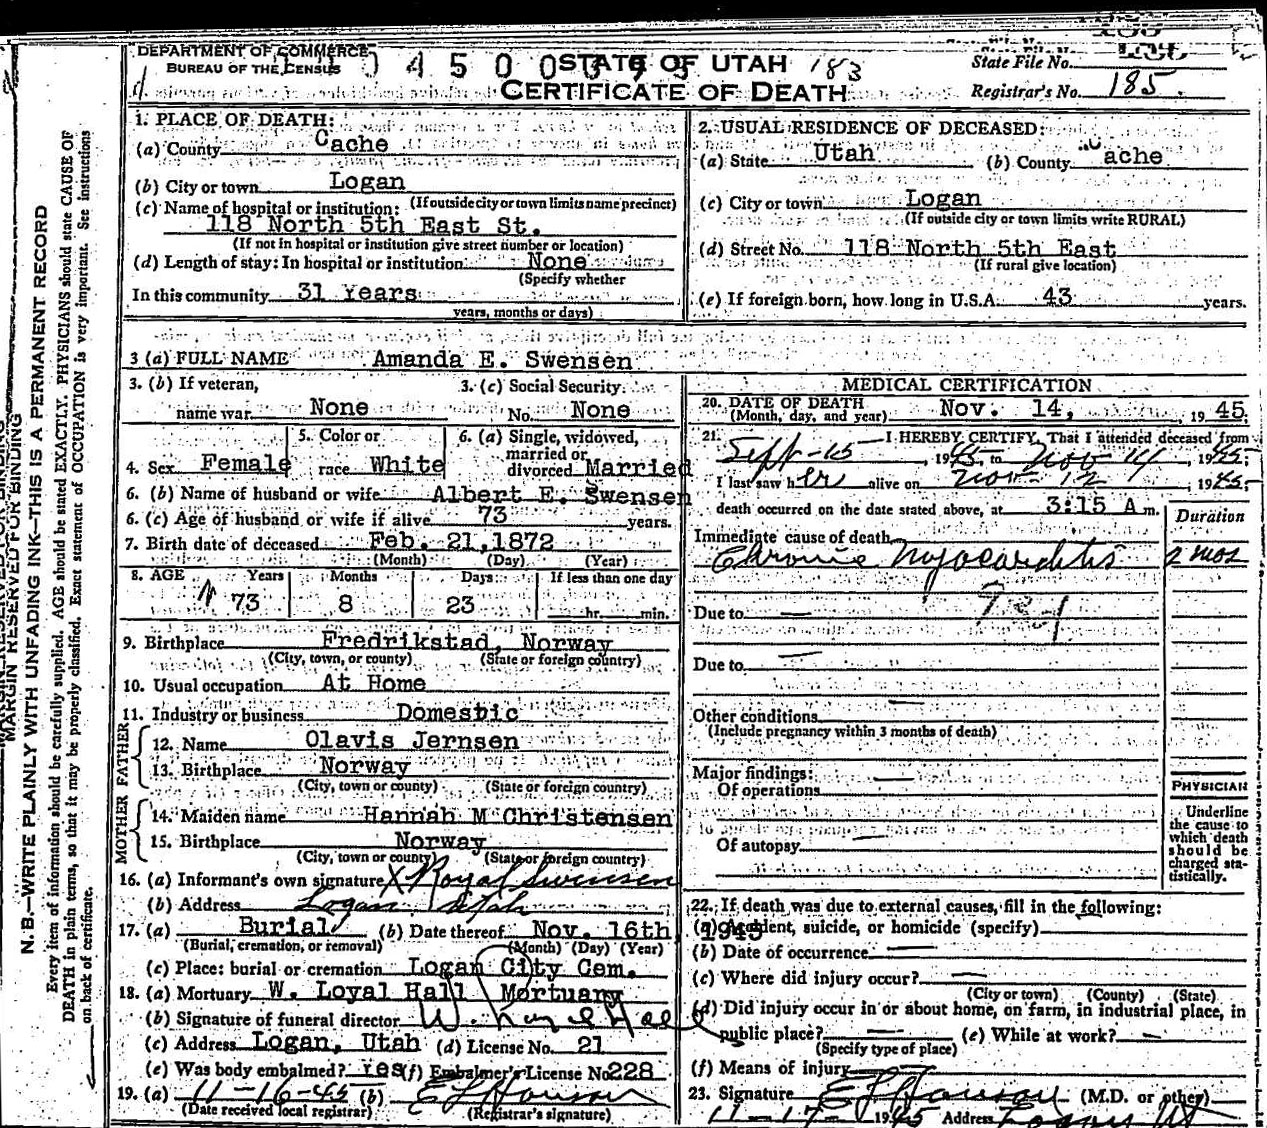 DEPARTMENT OF COMMERCE
BUREAU OF THE CENSUS
STATE OF UTAH 183
CERTIFICATE OF DEATH
State File No.
Registrar's No. 185.
1. PLACE OF DEATH:
(a) County Cache
(b) City or town Logan
(If outside city or town limits name precinct)
(c) Name of hospital or institution:
118 North 5th East St.
(If not in hospital or institution give street number or location)
(d) Length of stay: In hospital or institution None
(Specify whether
In this community 31 Years
years, months or days)
2. USUAL RESIDENCE OF DECEASED:
(a) State Utah (b) County Cache
(c) City or town Logan
(If outside city or town limits write RURAL)
(d) Street No. 118 North 5th East
(If rural give location)
(e) If foreign born, how long in U.S.A. 43 years.
3 (a) FULL NAME Amanda E. Swensen
3. (b) If veteran, 3. (c) Social Security
name war. None No. None
4. Sex Female 5. Color or race White 6. (a) Single, widowed, married or divorced Married
6. (b) Name of husband or wife Albert E. Swensen
6. (c) Age of husband or wife if alive 73 years.
7. Birth date of deceased Feb. 21, 1872
(Month) (Day) (Year)
8. AGE Years Months Days If less than one day
73 8 23 hr. min.
9. Birthplace Fredrikstad, Norway
(City, town, or county) (State or foreign country)
10. Usual occupation At Home
11. Industry or business Domestic
FATHER
12. Name Olavis Jernsen
13. Birthplace Norway
(City, town or county) (State or foreign country)
MOTHER
14. Maiden name Hannah M Christensen
15. Birthplace Norway
(City, town or county) (State or foreign country)
16. (a) Informant's own signature X Royal Swensen
(b) Address Logan Utah
17. (a) Burial (b) Date thereof Nov. 16th, 1945
(Burial, cremation, or removal) (Month) (Day) (Year)
(c) Place: burial or cremation Logan City Cem.
18. (a) Mortuary W. Loyal Hall Mortuary
(b) Signature of funeral director W. Loyal Hall
(c) Address Logan, Utah (d) License No. 21
(e) Was body embalmed? Yes (f) Embalmer's License No 228
19. (a) 11-16-45 (b)
(Date received local registrar) (Registrar's signature)
MEDICAL CERTIFICATION
20. DATE OF DEATH
(Month, day, and year) Nov. 14, 1945.
21. I HEREBY CERTIFY, That I attended deceased from
Sept-15, 1945, to Nov-14, 1945;
I last saw her alive on Nov-12, 1945;
death occurred on the date stated above, at 3:15 A m.
Duration
Immediate cause of death
Chronic Myocarditis 2 mos
Due to —
Due to —
Other conditions —
(Include pregnancy within 3 months of death)
Major findings:
Of operations —
Of autopsy —
PHYSICIAN
Underline
the cause to
which death
should be
charged sta-
tistically.
22. If death was due to external causes, fill in the following:
(a) Accident, suicide, or homicide (specify)
(b) Date of occurrence —
(c) Where did injury occur? —
(City or town) (County) (State)
(d) Did injury occur in or about home, on farm, in industrial place, in
public place? — (e) While at work? —
(Specify type of place)
(f) Means of injury
23. Signature (M.D. or other)
11-17- 1945 Address Logan Ut
MARGIN RESERVED FOR BINDING
N. B.—WRITE PLAINLY WITH UNFADING INK—THIS IS A PERMANENT RECORD
Every item of information should be carefully supplied. AGE should be stated EXACTLY. PHYSICIANS should state CAUSE OF
DEATH in plain terms, so that it may be properly classified. Exact statement of OCCUPATION is very important. See instructions
on back of certificate.